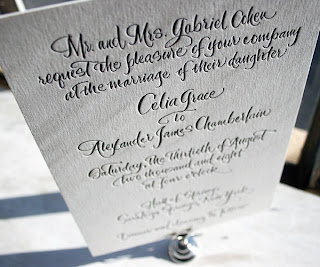 Mr. and Mrs. Gabriel Cohen
request the pleasure of your company
at the marriage of their daughter
Celia Grace
to
Alexander James Chamberlain
Saturday, the thirtieth of August
two thousand and eight
at four o'clock
Hall of Springs
Saratoga Springs, New York
Dinner and dancing to follow